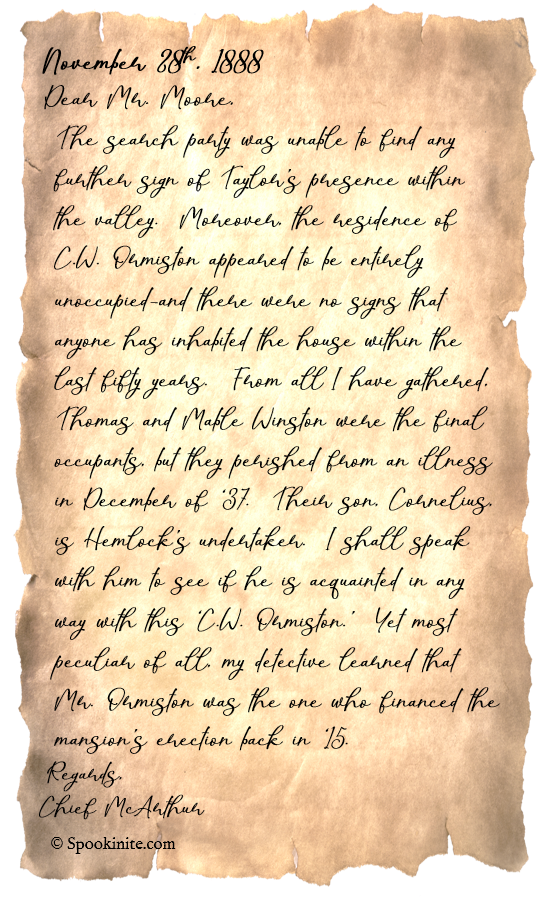 November 28th, 1888
Dear Mr. Moore,
The search party was unable to find any
further sign of Taylor's presence within
the valley. Moreover, the residence of
C.W. Ormiston appeared to be entirely
unoccupied-and there were no signs that
anyone has inhabited the house within the
last fifty years. From all I have gathered,
Thomas and Mable Winston were the final
occupants, but they perished from an illness
in December of '37. Their son, Cornelius,
is Hemlock's undertaker. I shall speak
with him to see if he is acquainted in any
way with this 'C.W. Ormiston.' Yet most
peculiar of all, my detective learned that
Mr. Ormiston was the one who financed the
mansion's erection back in '15.
Regards,
Chief McArthur
© Spookinite.com